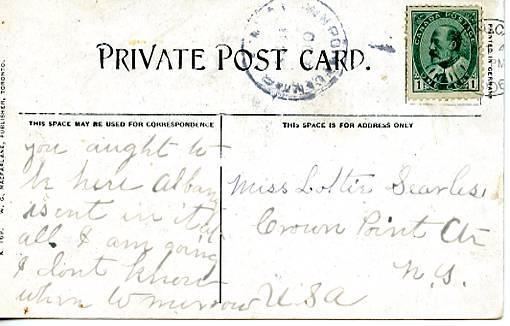 PRIVATE POST CARD.
CANADA POSTAGE
1 1
PRINTED IN GERMANY
W. G. MACFARLANE, PUBLISHER, TORONTO.
THIS SPACE MAY BE USED FOR CORRESPONDENCE
THIS SPACE IS FOR ADDRESS ONLY
you aught to
be here Albany
isent in it at
all I am going
I dont know
when tomurrow
Miss Lottie Searles
Crown Point Ctr
N.Y.
USA